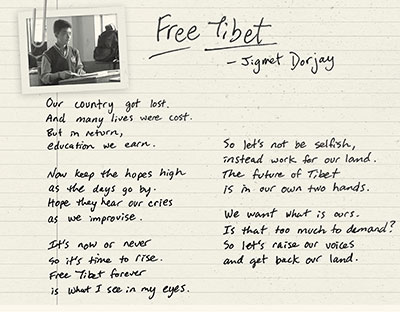 Free Tibet
- Jigmet Dorjay
Our country got lost.
And many lives were cost.
But in return,
education we earn.
Now keep the hopes high
as the days go by.
Hope they hear our cries
as we improvise.
It's now or never
so it's time to rise.
Free Tibet forever
is what I see in my eyes.
So let's not be selfish,
instead work for our land.
The future of Tibet
is in our own two hands.
We want what is ours.
Is that too much to demand?
So let's raise our voices
and get back our land.